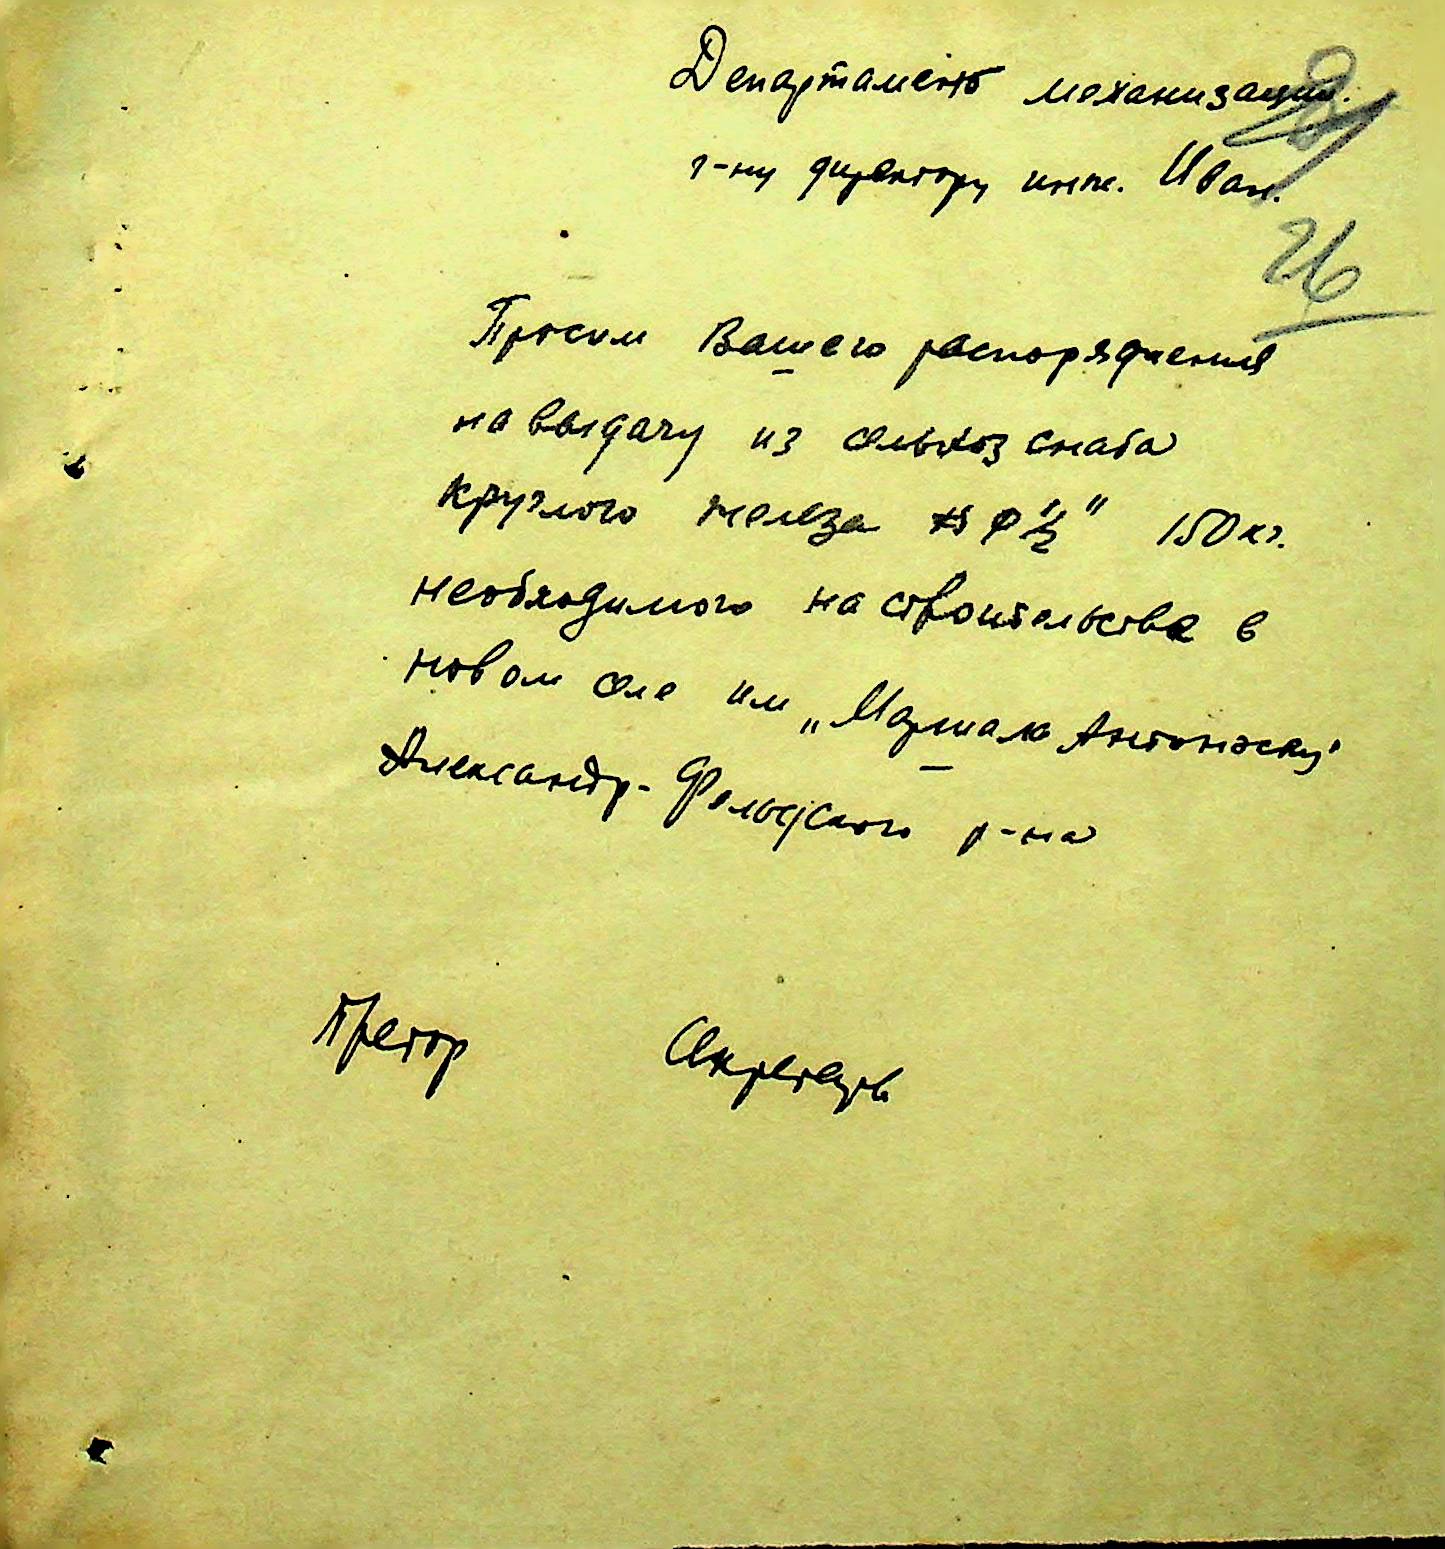 Департаментъ механизации.
г-ну директору инж. Иван.
26
Просим Вашего распоряжения
на выдачу из сельхозснаба
круглого железа ф ½" 150 кг.
необходимого на строительства в
новом селе им „Маршала Антонэску"
Александр-Фельдского р-на
Претор Секретарь